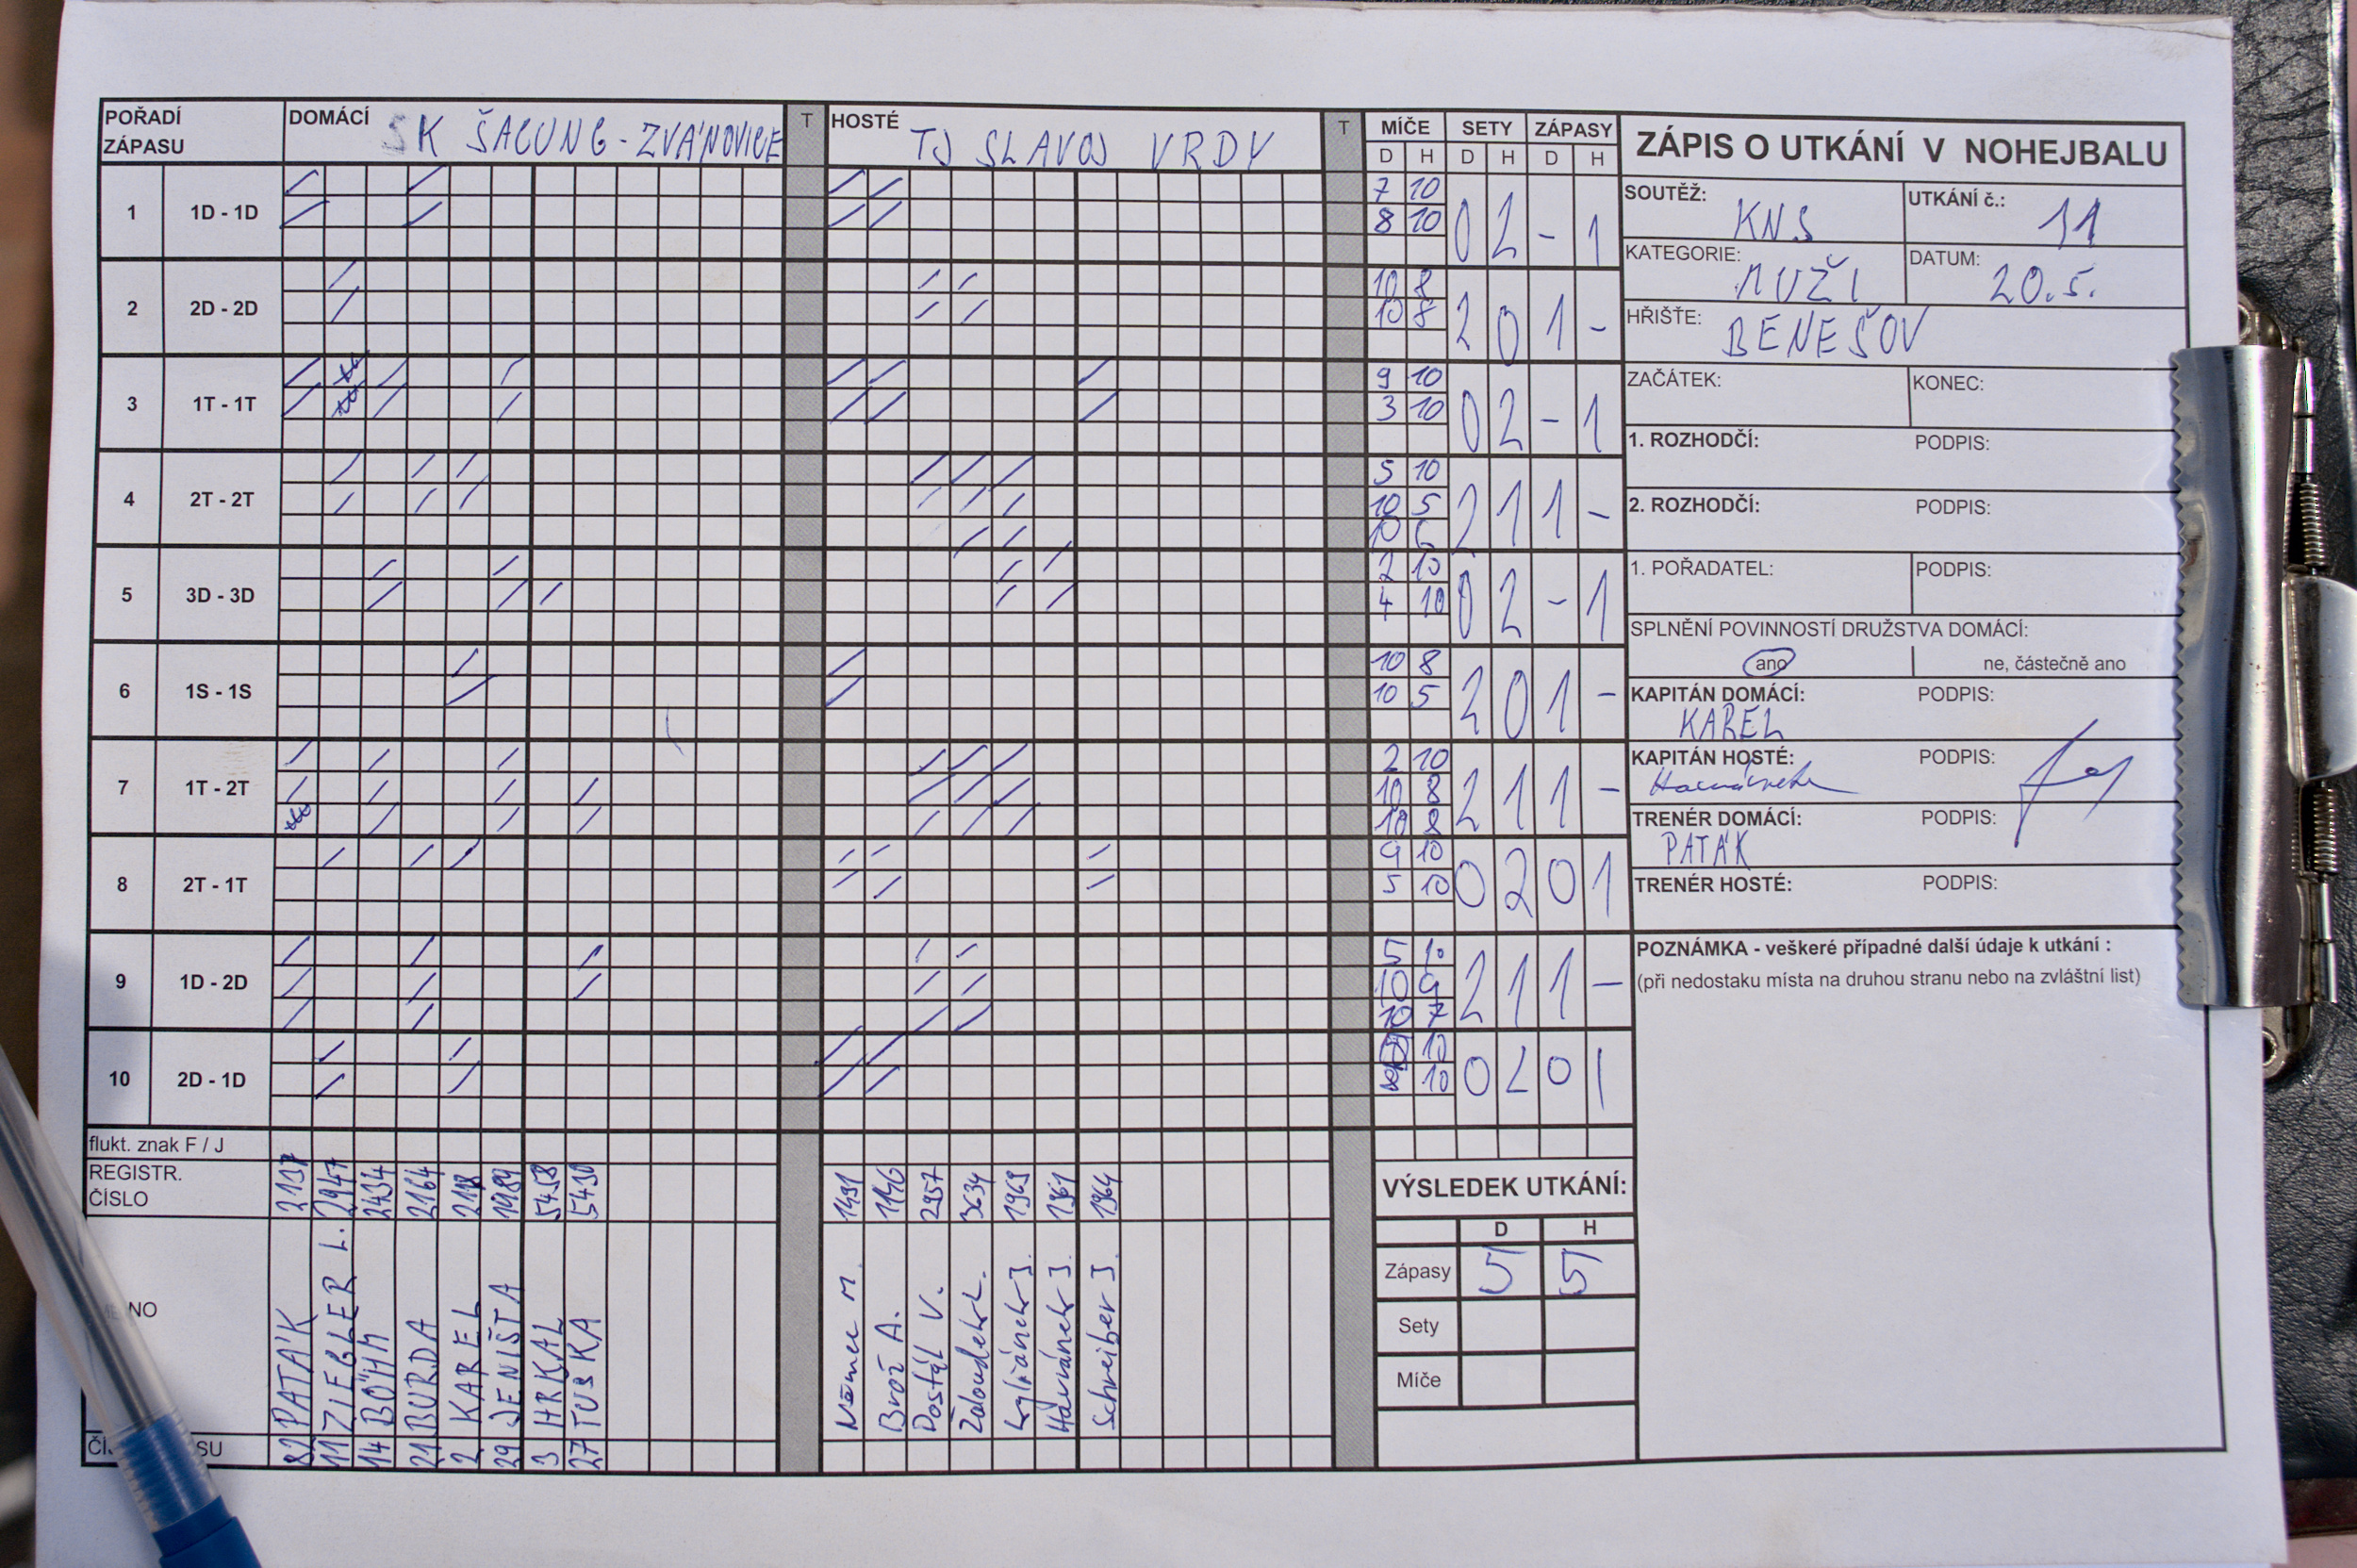 POŘADÍ ZÁPASU
DOMÁCÍ SK ŠACUNG-ZVÁNOVICE
T
HOSTÉ TJ SLAVOJ VRDY
T
MÍČE SETY ZÁPASY
D H D H D H
1 1D - 1D
7 10
8 10
0 2 - 1
2 2D - 2D
10 8
10 8
2 0 1 -
3 1T - 1T
9 10
3 10
0 2 - 1
4 2T - 2T
5 10
10 5
10 6
2 1 1 -
5 3D - 3D
2 10
4 10
0 2 - 1
6 1S - 1S
10 8
10 5
2 0 1 -
7 1T - 2T
2 10
10 8
10 8
2 1 1 -
8 2T - 1T
9 10
5 10
0 2 0 1
9 1D - 2D
5 10
10 9
10 7
2 1 1 -
10 2D - 1D
10
10
0 2 0 1
flukt. znak F / J
REGISTR. ČÍSLO
2137 2947 2434 2164 1989 5458 5430
1491 1140 2957 3634 1969 1961 1964
NO
PATÁK
ZIEGLER L.
BÖHM
BURDA
KAREL
JENIŠTA
HRKAL
TUŠKA
Němec M.
Brož A.
Dostál V.
Žaloudek L.
Havránek J.
Schreiber J.
SU
82 11 14 21 2 29 3 27
VÝSLEDEK UTKÁNÍ:
D H
Zápasy 5 5
Sety
Míče
ZÁPIS O UTKÁNÍ V NOHEJBALU
SOUTĚŽ: KNS
UTKÁNÍ č.: 11
KATEGORIE: MUŽI
DATUM: 20.5.
HŘIŠTE: BENEŠOV
ZAČÁTEK: KONEC:
1. ROZHODČÍ: PODPIS:
2. ROZHODČÍ: PODPIS:
1. POŘADATEL: PODPIS:
SPLNĚNÍ POVINNOSTÍ DRUŽSTVA DOMÁCÍ:
ano ne, částečně ano
KAPITÁN DOMÁCÍ: PODPIS:
KAREL
KAPITÁN HOSTÉ: PODPIS:
TRENÉR DOMÁCÍ: PODPIS:
PATÁK
TRENÉR HOSTÉ: PODPIS:
POZNÁMKA - veškeré případné další údaje k utkání :
(při nedostaku místa na druhou stranu nebo na zvláštní list)